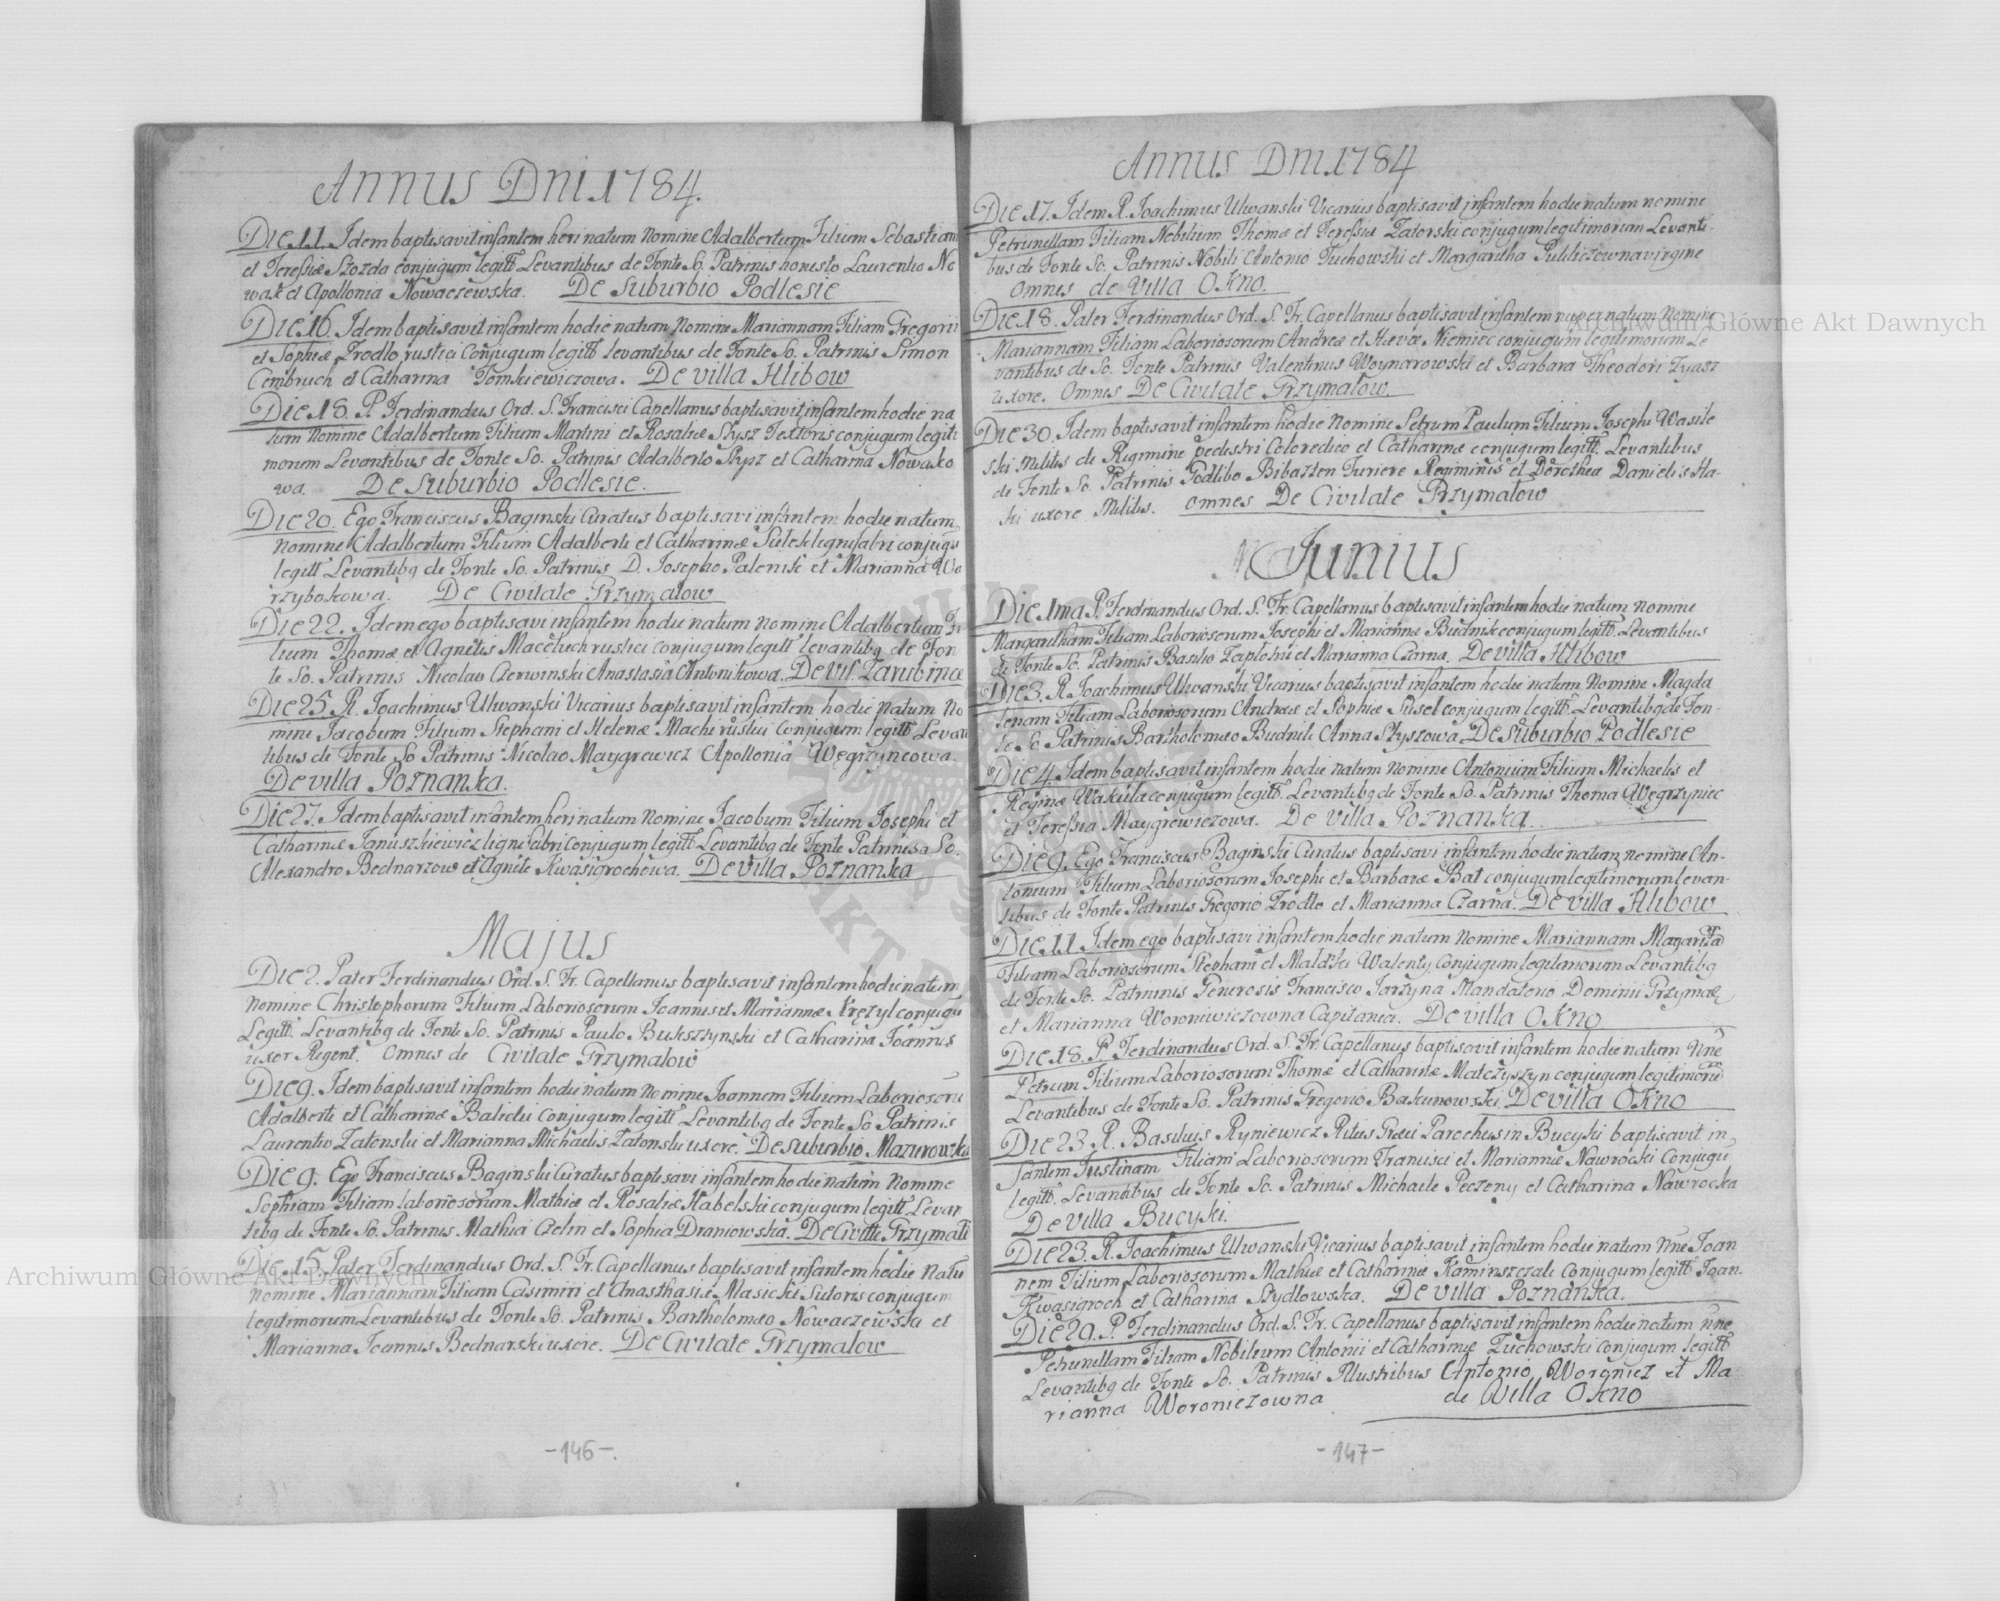 Annus Dni. 1784.
Die 11. Idem baptisavit infantem heri natum nomine Adalbertum Filium Sebastiani
et Teressiæ Szozda conjugum legitt. Levantibus de Fonte So. Patrinis honesto Laurentio No
wak et Apollonia Nowaczewska. De Suburbio Podlesie
Die 16. Idem baptisavit infantem hodie natam Nomine Mariannam Filiam Gregorii
et Sophiæ Zrodlo rustici Conjugum legitt levantibus de Fonte So. Patrinis Simon
Cembruch et Catharina Tomkiewiczowa. De villa Hlibow
Die 18. P. Ferdinandus Ord. S. Francisci Capellanus baptisavit infantem hodie na
tum Nomine Adalbertum Filium Martini et Rosaliæ Skysz Textoris conjugum legiti
morum Levantibus de Fonte So. Patrinis Adalberto Skysz et Catharina Nowako
wa. De Suburbio Podlesie.
Die 20. Ego Franciscus Baginski Curatus baptisavi infantem hodie natum
Nomine Adalbertum Filium Adalberti et Catharinæ lignifabri conjugu
legitt Levantibq de Fonte So. Patrinis D. Josepho Palenik et Marianna Wa
rzybokowa. De Civitate Grzymalow
Die 22. Idem ego baptisavi infantem hodie natum nomine Adalbertum Fi
lium Thomæ et Agnetis Maceluch rustici conjugum legitt levantibq de Fon
te So. Patrinis Nicolao Czerwinski Anastasia Antonikowa. De vil. Zarubince
Die 25 R. Joachimus Ulwanski Vicarius baptisavit infantem hodie natum No
mine Jacobum Filium Stephani et Helenæ Machi rustici conjugum legitt Levan
tibus de Fonte So Patrinis Nicolao Maygrewicz Apollonia Węgrzyncowa.
De villa Poznanka.
Die 27. Idem baptisavit infantem heri natum nomine Jacobum Filium Josephi et
Catharinæ Januszkiewicz lignifabri conjugum legitt Levantibq de Fonte Patrinis a So.
Alexandro Bednarzow et Agnete Kwasigrochowa. De villa Poznanka
Majus
Die 2. Pater Ferdinandus Ord. S. Fr. Capellanus baptisavit infantem hodie natum
Nomine Christophorum Filium Laboriosorum Joannis et Mariannæ Kręzyl conjugu
Legitt. Levantibq de Fonte So. Patrinis Paulo Bukszynski et Catharina Joannis
uxor Regent. Omnes de Civitate Grzymalow
Die 9. Idem baptisavit infantem hodie natum nomine Joannem Filium Laboriosoru
Adalberti et Catharinæ Balicki Conjugum legitt Levantibq de Fonte So Patrinis
Laurentio Zatonski et Marianna Michaelis Zatonski uxore. De suburbio Mazurowka
Die 9. Ego Franciscus Baginski Curatus baptisavi infantem hodie natum Nomine
Sophiam Filiam laboriosorum Mathiæ et Rosaliæ Habelski conjugum legitt Levan
tibq de Fonte So. Patrinis Mathia Czelin et Sophia Draniowska. De Civitte Grzymalo
Die 15. Pater Ferdinandus Ord. S. Fr. Capellanus baptisavit infantem hodie natu
nomine Mariannam Filiam Casimiri et Anasthasiæ Masicki Sutoris conjugum
legitimorum Levantibus de Fonte So. Patrinis Bartholomæo Nowaczewski et
Marianna Joannis Bednarski uxore. De Civitate Grzymalow
-146-.
Annus Dni. 1784
Die 17. Idem R. Joachimus Ulwanski Vicarius baptisavit infantem hodie natum nomine
Petrunellam Filiam Nobilium Thomæ et Teressiæ Zatorski conjugum legitimorum Levanti-
bus de Fonte So. Patrinis Nobili Antonio Tuchowski et Margaritha virgine
Omnes de villa Okno.
Die 18. Pater Ferdinandus Ord. S. Fr. Capellanus baptisavit infantem nuper natam Nomine
Mariannam Filiam Laboriosorum Andreæ et Hævæ Niemiec conjugum legitimorum Le
vantibus de So. Fonte Patrinis Valentinus Woynarowski et Barbara Theodori Zyasz
uxore. Omnes De Civitate Grzymalow.
Die 30. Idem baptisavit infantem hodie Nomine Petrum Paulum Filium Josephi Wasile
ski Militis de Regimine pedestri Coloredico et Catharinæ conjugum legitt. Levantibus
de Fonte So. Patrinis Godlibo Bibaszten Furiere Regiminis et Dorothea Danielis Ha-
ski uxore Militis. Omnes De Civitate Grzymalow
Junius
Die 1ma P. Ferdinandus Ord. S. Fr. Capellanus baptisavit infantem hodie natum nomine
Margaritham Filiam Laboriosorum Josephi et Mariannæ Budnik conjugum legitt. Levantibus
de Fonte So. Patrinis Basilio et Marianna Czarna. De villa Hlibow
Die 3. R. Joachimus Ulwanski Vicarius baptisavit infantem hodie natum Nomine Magda
lenam Filiam Laboriosorum Andreæ et Sophiæ conjugum legitt. Levantibq de Fon-
te So Patrinis Bartholomæo Budnik Anna Skyszowa. De Suburbio Podlesie
Die 4. Idem baptisavit infantem hodie natum nomine Antonium Filium Michaelis et
Reginæ Wakula conjugum legitt. Levantibq de Fonte So. Patrinis Thoma Węgrzyniec
et Teressia Maygrewiczowa. De villa Poznanka.
Die 9. Ego Franciscus Baginski Curatus baptisavi infantem hodie natum nomine An-
tonium Filium Laboriosorum Josephi et Barbaræ Bat conjugum legitimorum levan-
tibus de Fonte Patrinis Gregorio Zrodlo et Marianna Czarna. De villa Hlibow
Die 11. Idem ego baptisavi infantem hodie natum Nomine Mariannam Margarita
Filiam Laboriosorum Stephani et Walenty Conjugum legitimorum Levantibq
de Fonte So. Patrinis Generosis Francisco Jarzyna Mandatorio Dominii Grzymal
et Marianna Woroniewiczowna Capitanea. De villa Okno
Die 18. P. Ferdinandus Ord. S. Fr. Capellanus baptisavit infantem hodie natum Nne
Petrum Filium Laboriosorum Thomæ et Catharinæ Matczyszyn conjugum legitimoru
Levantibus de Fonte So. Patrinis Gregorio Baskunowski. De villa Okno
Die 23. R. Basilius Ryniewicz Ritus Græci Parochus in Bucyki baptisavit in
fantem Justinam Filiam Laboriosorum Francisci et Mariannæ Nawrocki Conjugu
legitt. Levantibus de Fonte So. Patrinis Michaele Peczeny et Catharina Nawrocka
De villa Bucyki.
Die 23. R. Joachimus Ulwanski Vicarius baptisavit infantem hodie natum Nne Joan
nem Filium Laboriosorum Mathiæ et Catharinæ Kaminszczak Conjugum legitt Joan.
Kwasigroch et Catharina Szydlowska. De villa Poznanka.
Die 29. P. Ferdinandus Ord. S. Fr. Capellanus baptisavit infantem hodie natum Nne
Petrunellam Filiam Nobilium Antonii et Catharinæ Zuchowski Conjugum legitt
Levantibq de Fonte So. Patrinis Illustribus Antonio Woronicz et Ma-
rianna Woroniczowna de Villa Okno
-147-
Archiwum Główne Akt Dawnych
Archiwum Główne Akt Dawnych